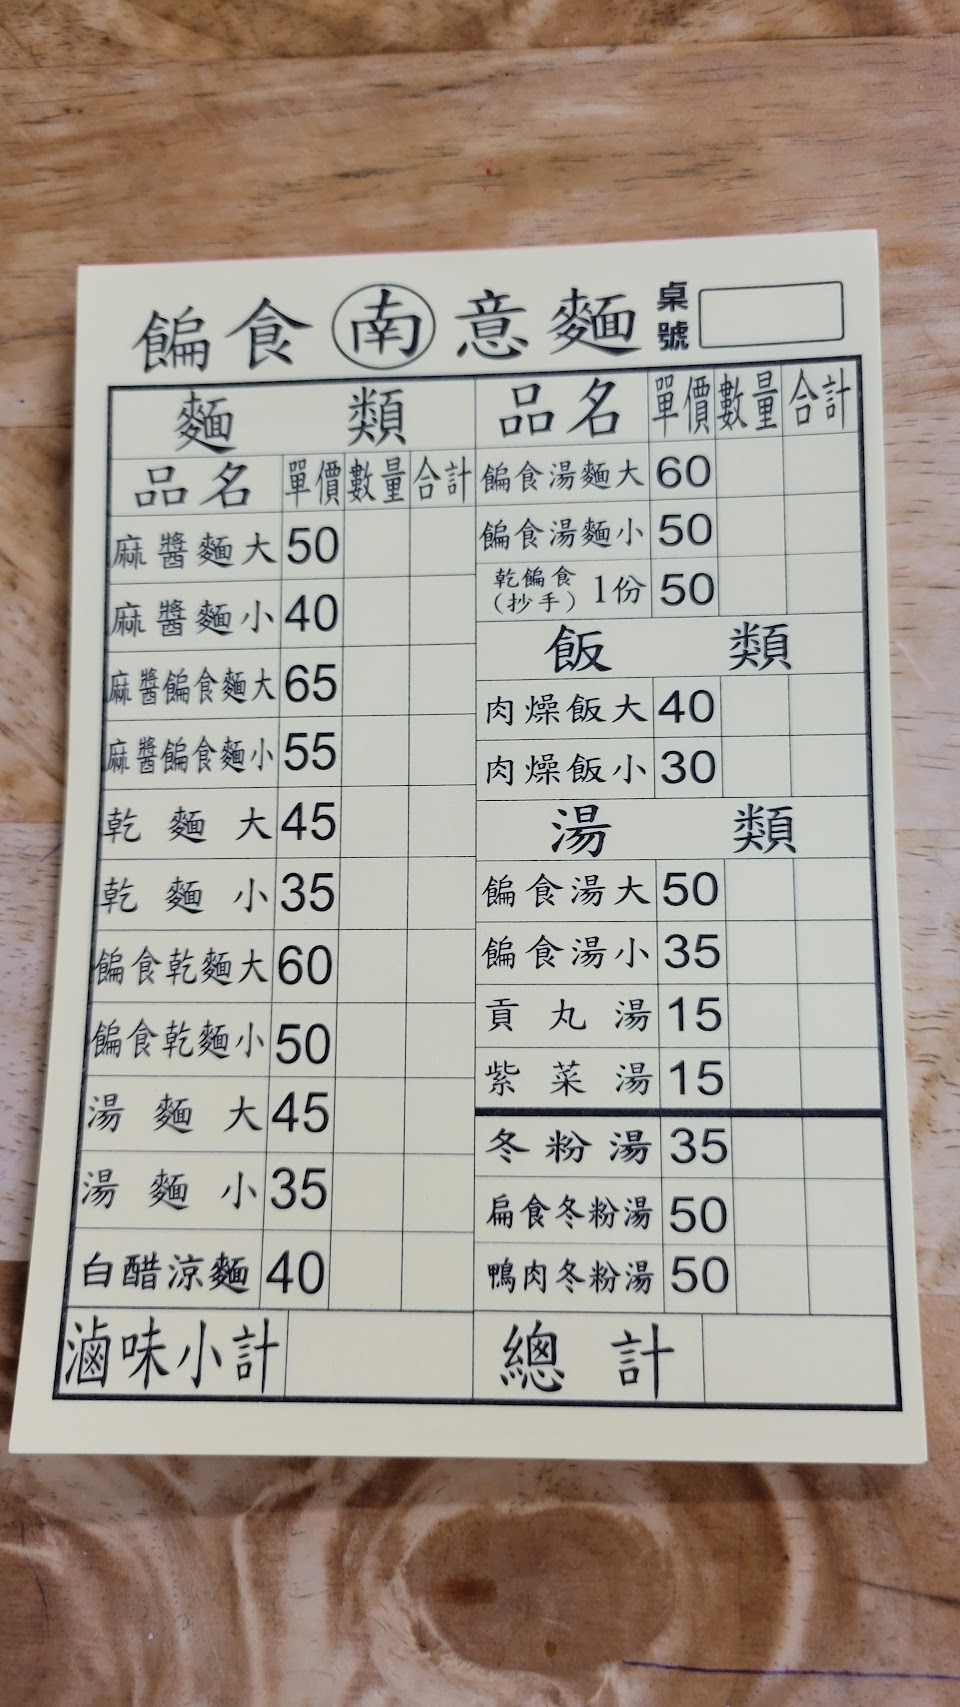 餶食南意麵 桌號
麵類
品名 單價 數量 合計
麻醬麵大 50
麻醬麵小 40
麻醬餶食麵大 65
麻醬餶食麵小 55
乾麵大 45
乾麵小 35
餶食乾麵大 60
餶食乾麵小 50
湯麵大 45
湯麵小 35
白醋涼麵 40
滷味小計
品名 單價 數量 合計
餶食湯麵大 60
餶食湯麵小 50
乾餶食(抄手) 1份 50
飯類
肉燥飯大 40
肉燥飯小 30
湯類
餶食湯大 50
餶食湯小 35
貢丸湯 15
紫菜湯 15
冬粉湯 35
扁食冬粉湯 50
鴨肉冬粉湯 50
總計